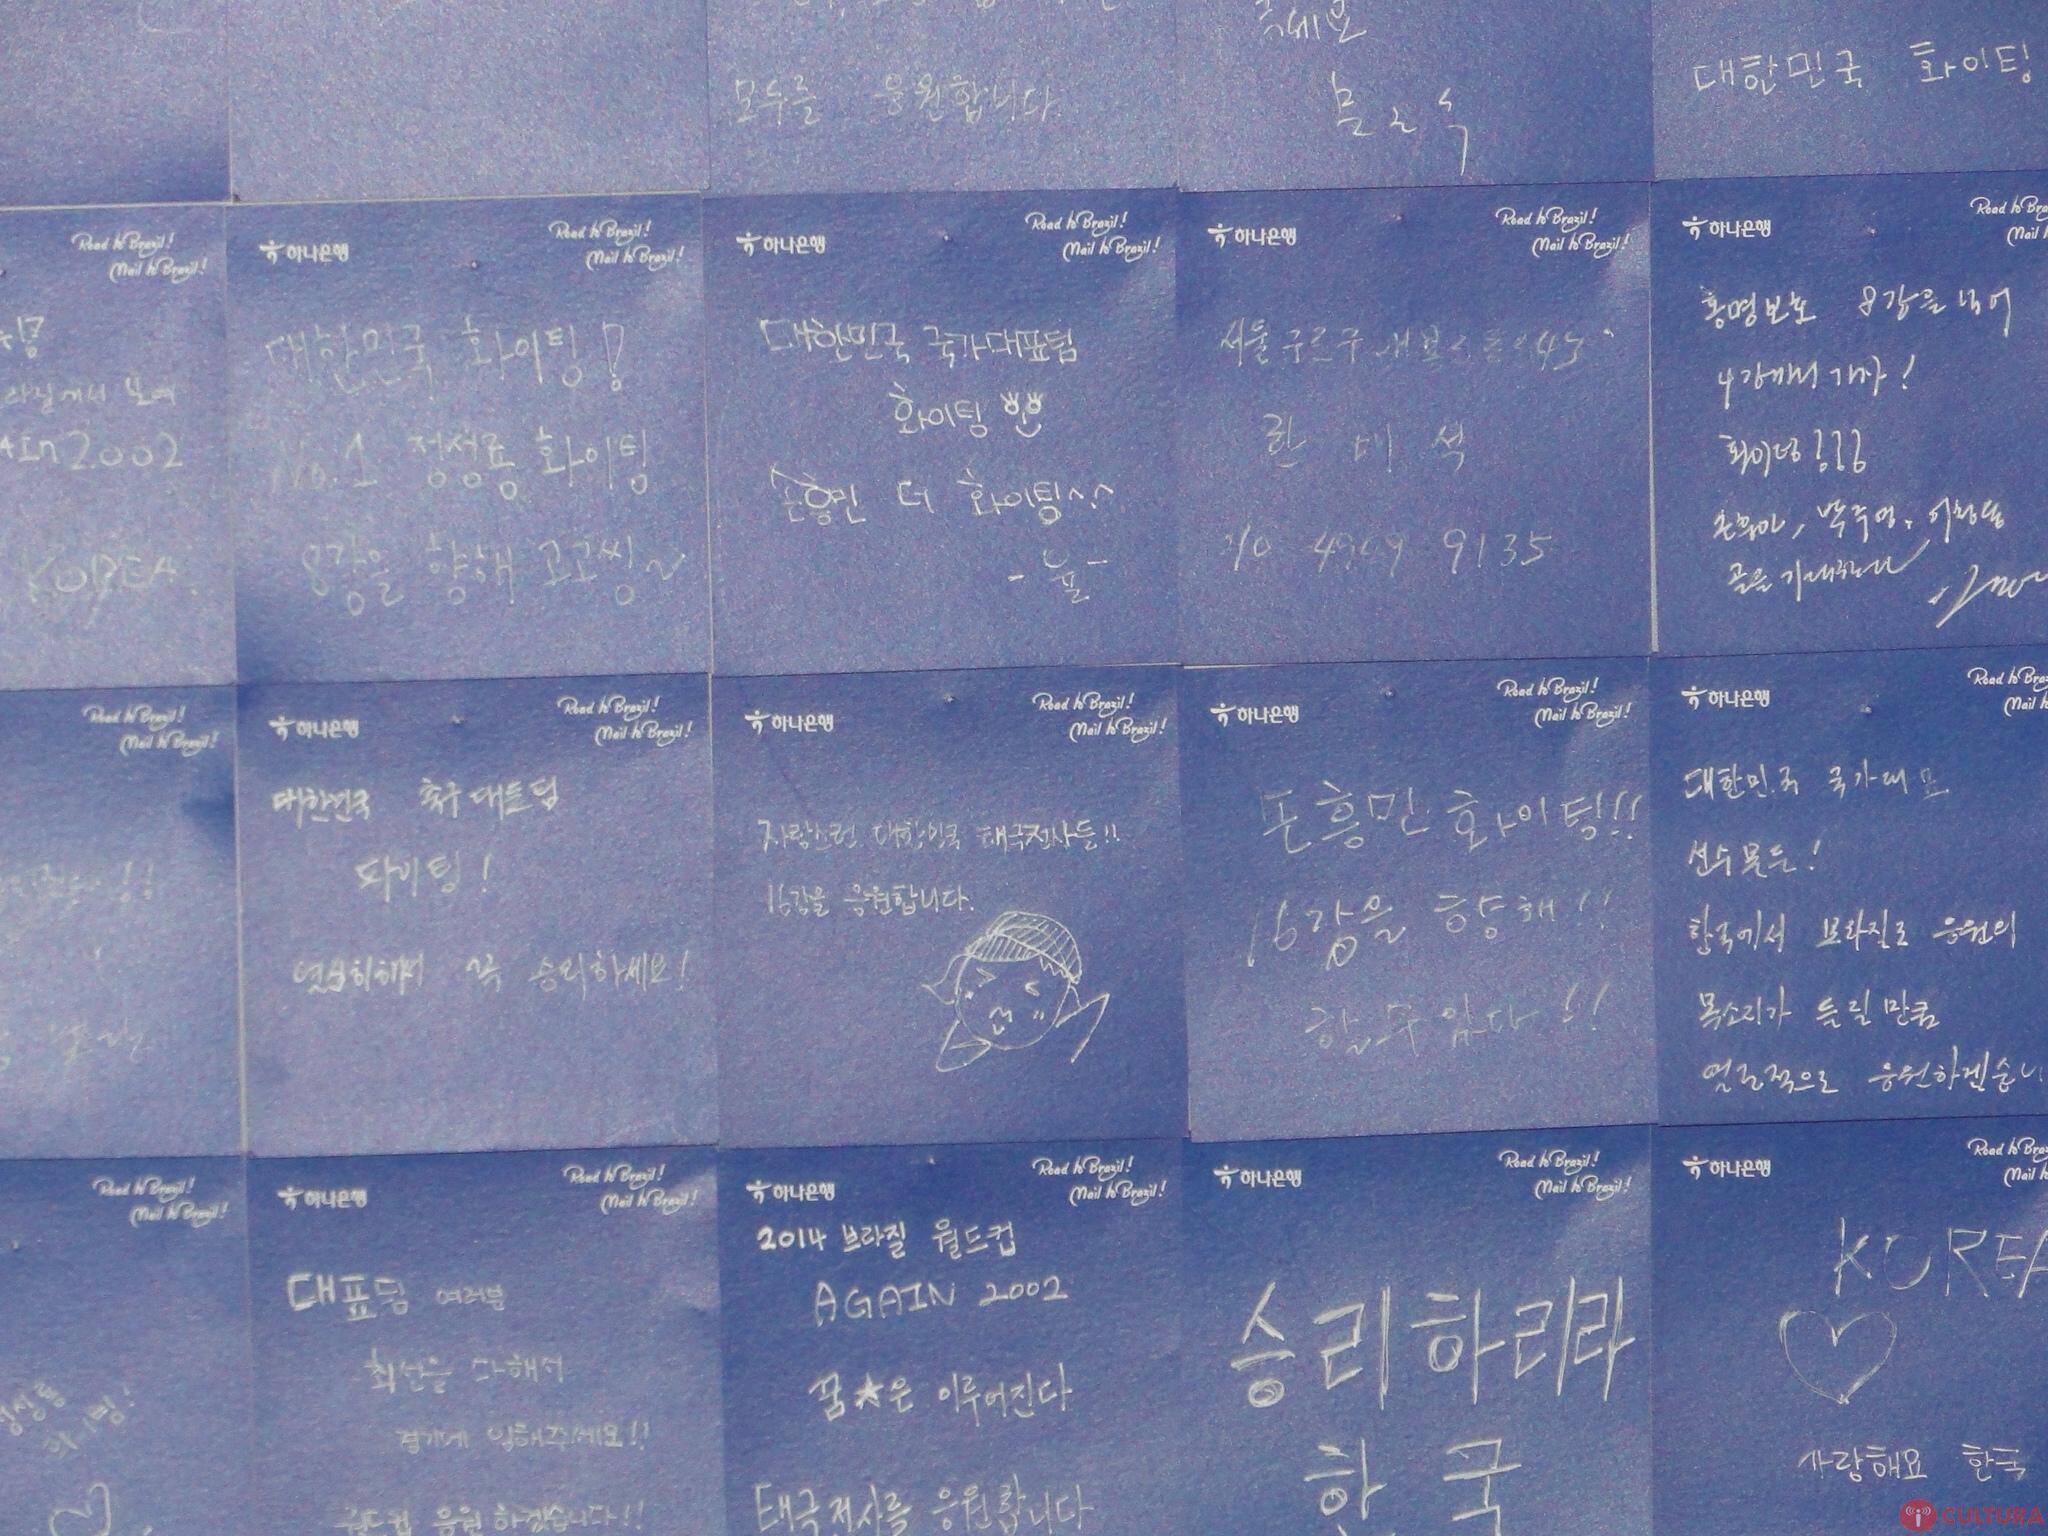 모두를 응원합니다
대한민국 화이팅
Road to Brazil!
Mail to Brazil!
2002
KOREA
하나은행
Road to Brazil!
Mail to Brazil!
대한민국 화이팅!
No.1 정성룡 화이팅
8강을 향해 고고씽~
하나은행
Road to Brazil!
Mail to Brazil!
대한민국 국가대표팀
화이팅
손흥민 더 화이팅^^
하나은행
Road to Brazil!
Mail to Brazil!
한 미 석
010 4909 9135
하나은행
Road to
Mail to
홍명보호 8강을 넘어
4강까지 가자!
화이팅!!!
손흥민, 박주영, 이청용
골을 기대합니다
Road to Brazil!
Mail to Brazil!
하나은행
Road to Brazil!
Mail to Brazil!
대한민국 축구 대표팀
파이팅!
열심히해서 꼭 승리하세요!
하나은행
Road to Brazil!
Mail to Brazil!
자랑스런 대한민국 태극전사들!!
16강을 응원합니다.
하나은행
Road to Brazil!
Mail to Brazil!
손흥민 화이팅!!
16강을 향해!!
할 수 있다!!
하나은행
Road to
Mail to
대한민국 국가대표
선수분들!
한국에서 브라질로 응원의
목소리가 들릴 만큼
열정적으로 응원하겠습니
Road to Brazil!
Mail to Brazil!
정성룡
화이팅!
하나은행
Road to Brazil!
Mail to Brazil!
대표팀 여러분
최선을 다해서
경기에 임해주세요!!
월드컵 응원 하겠습니다!!
하나은행
Road to Brazil!
Mail to Brazil!
2014 브라질 월드컵
AGAIN 2002
꿈★은 이루어진다
태극전사를 응원합니다
하나은행
Road to Brazil!
Mail to Brazil!
승리하리라
한국
하나은행
Road to
Mail to
KOREA
사랑해요 한국
CULTURA